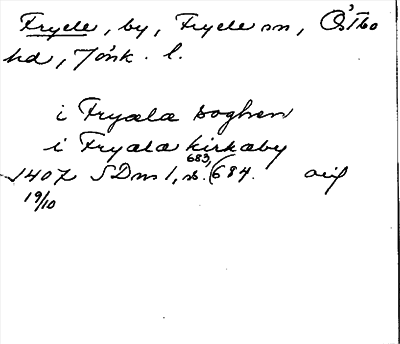 Fryele, by, Fryele sn, Ö:Tbo
hd, Jönk. l.
i Fryæla soghen
i Fryala kirkaby
1407 SDns 1, s. 683, (684. avs
19/10